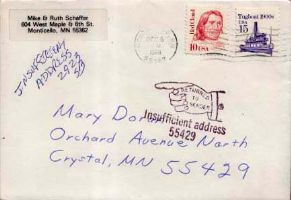 Mike & Ruth Schaffer
604 West Maple & 6th St.
Monticello, MN 55362
Red Cloud
10¢ USA
Tugboat 1900s
USA
15
INSUFFICIENT
ADDRESS
RETURNED
TO
SENDER
Insufficient address
55429
Mary Dor
Orchard Avenue North
Crystal, MN 55429